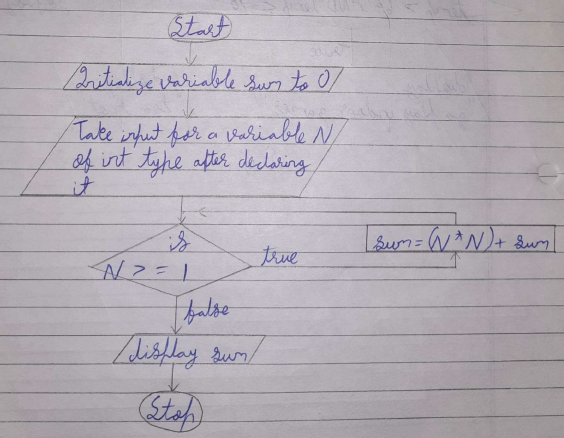 Start
Initialize variable sum to 0
Take input for a variable N
of int type after declaring
it
is
N > = 1
true
sum = (N * N) + sum
false
display sum
Stop